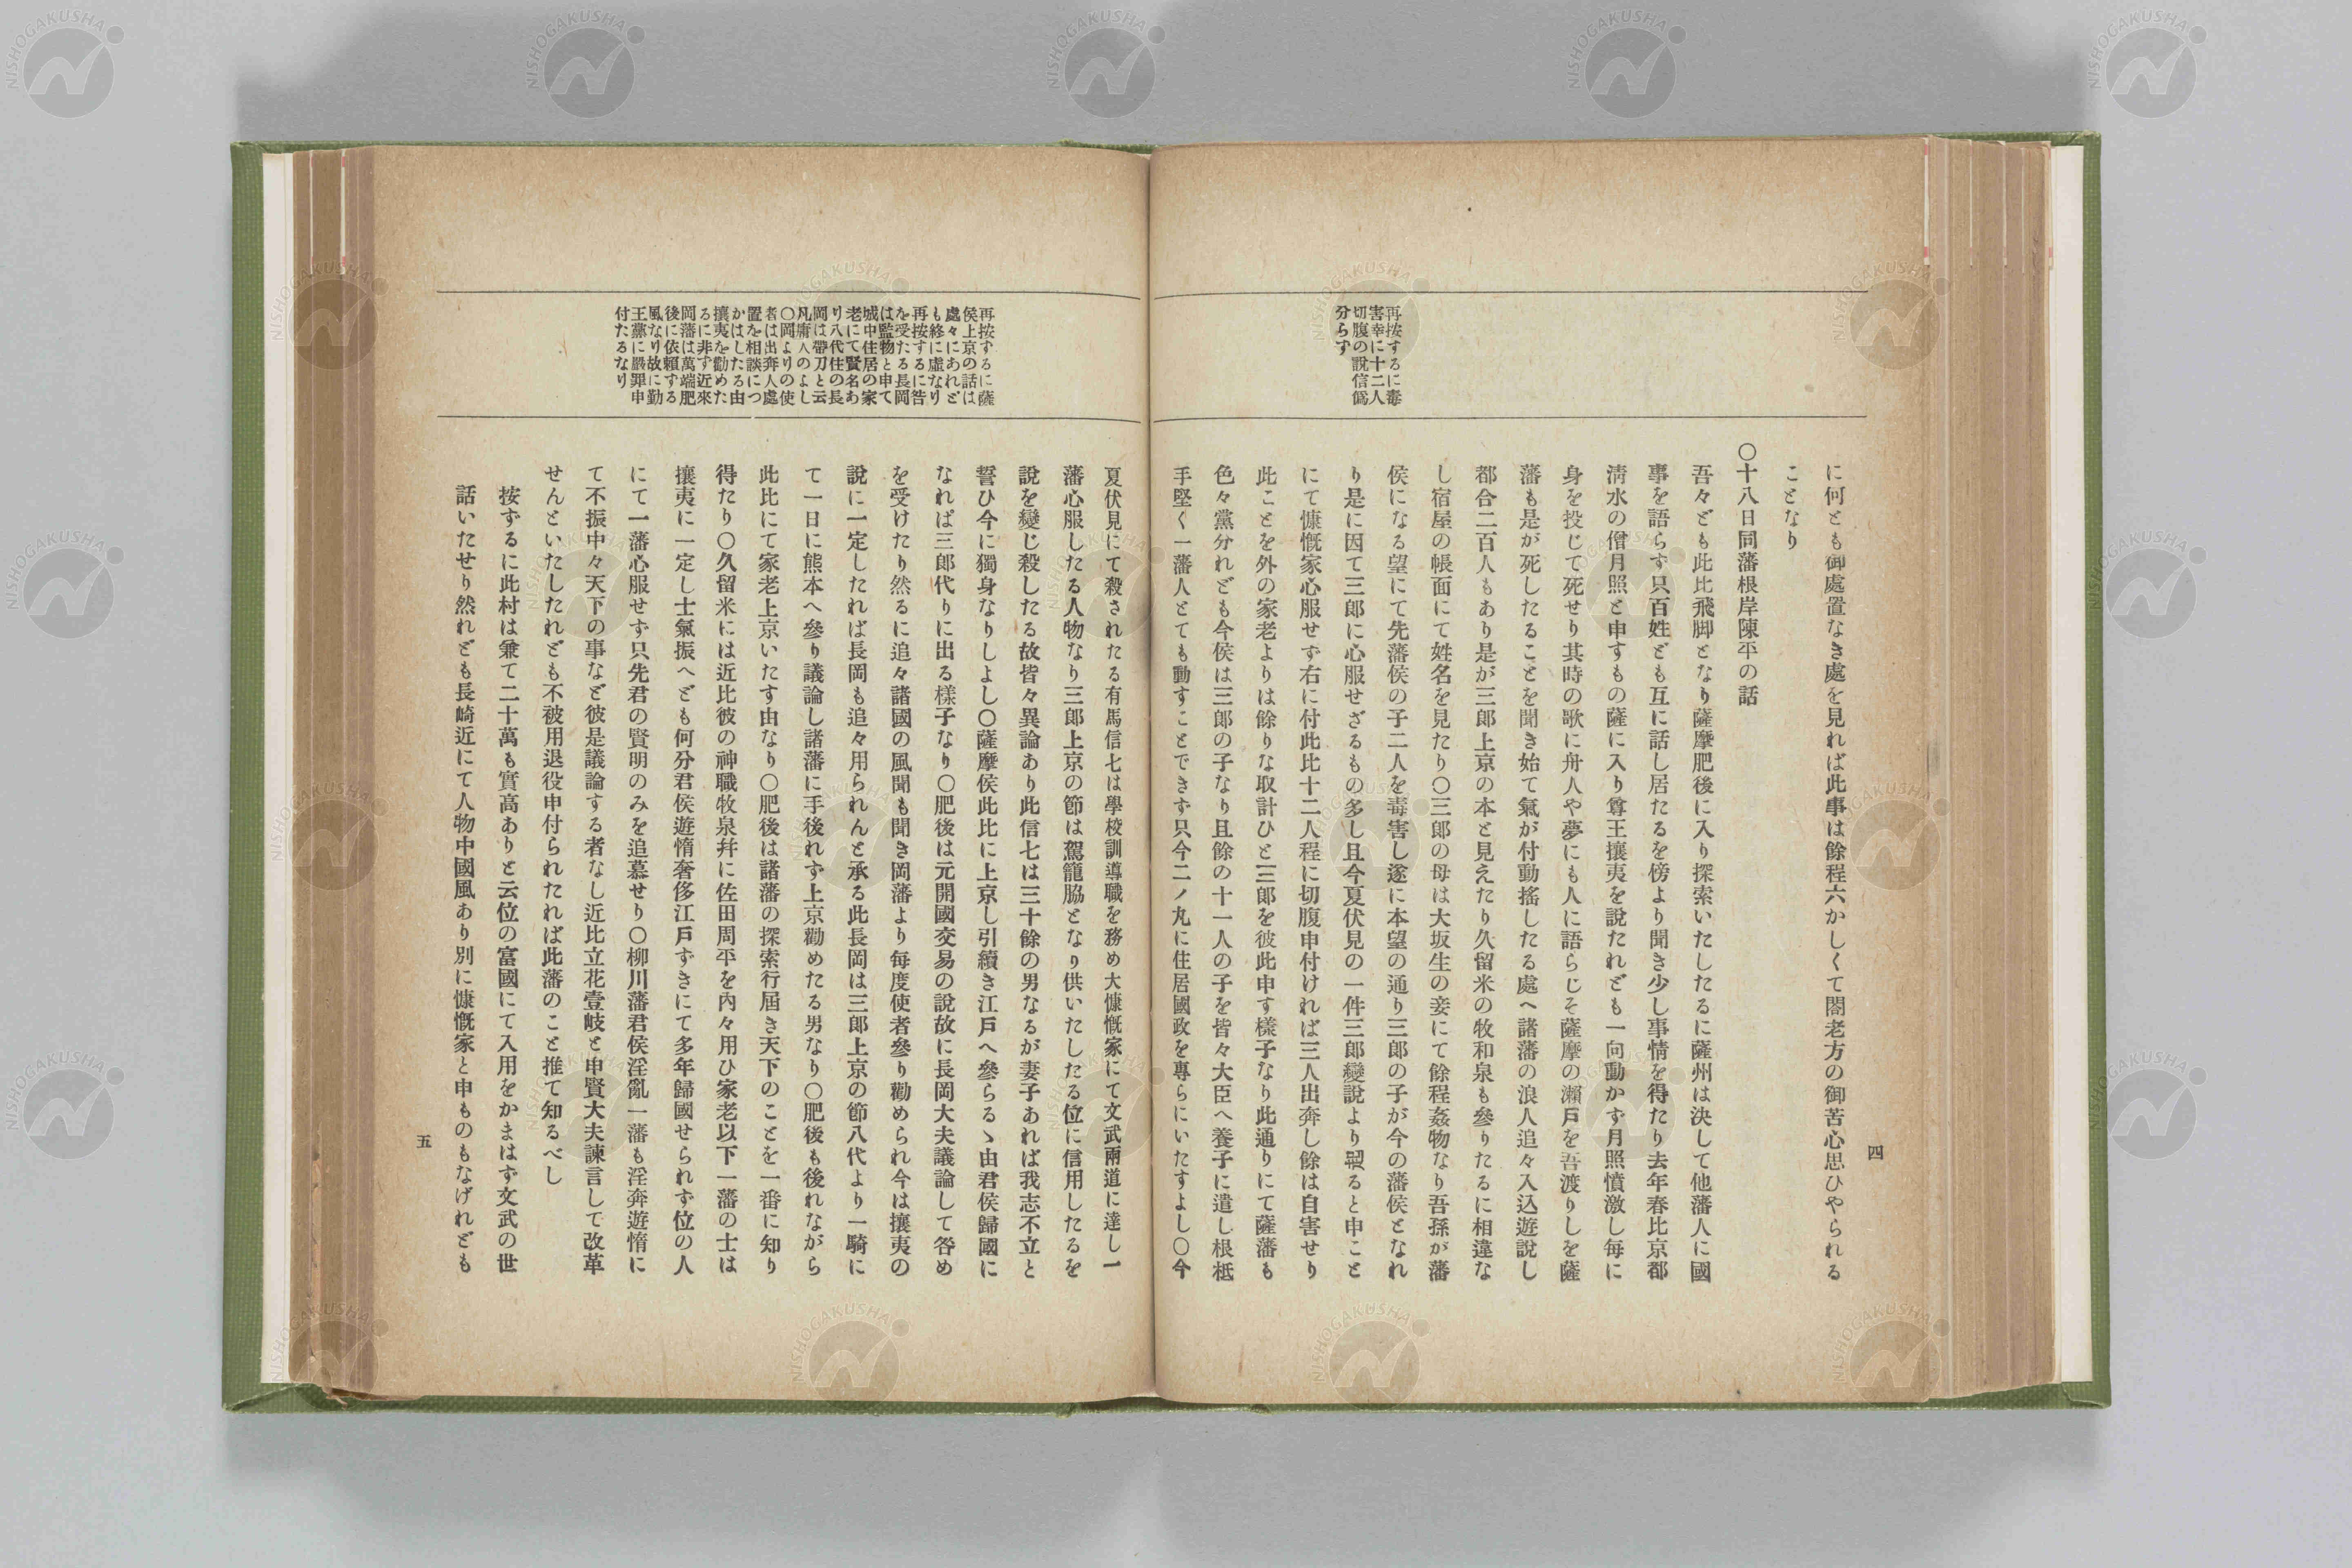 四
再按するに毒
害幸に十二人
切腹の說信僞
分らず
に何とも御處置なき處を見れば此事は餘程六かしくて閣老方の御苦心思ひやられる
ことなり
〇十八日同藩根岸陳平の話
吾々ども此比飛脚となり薩摩肥後に入り探索いたしたるに薩州は決して他藩人に國
事を語らず只百姓ども互に話し居たるを傍より聞き少し事情を得たり去年春比京都
淸水の僧月照と申すもの薩に入り尊王攘夷を說たれども一向動かず月照憤激し每に
身を投じて死せり其時の歌に舟人や夢にも人に語らじそ薩摩の瀨戶を吾渡りしを薩
藩も是が死したることを聞き始て氣が付動搖したる處へ諸藩の浪人追々入込遊說し
都合二百人もあり是が三郞上京の本と見えたり久留米の牧和泉も參りたるに相違な
し宿屋の帳面にて姓名を見たり〇三郞の母は大坂生の妾にて餘程姦物なり吾孫が藩
侯になる望にて先藩侯の子二人を毒害し遂に本望の通り三郞の子が今の藩侯となれ
り是に因て三郞に心服せざるもの多し且今夏伏見の一件三郞變說より起ると申こと
にて慷慨家心服せず右に付此比十二人程に切腹申付ければ三人出奔し餘は自害せり
此ことを外の家老よりは餘りな取計ひと三郞を彼此申す樣子なり此通りにて薩藩も
色々黨分れども今侯は三郞の子なり且餘の十一人の子を皆々大臣へ養子に遣し根柢
手堅く一藩人とても動すことできず只今二ノ丸に住居國政を專らにいたすよし〇今
再按するに薩
侯上京の話は
處々にあれど
も終に虛なり
再按するに咎
を受たる長岡
は監物と申て
城中住居の家
老にて賢名あ
り八代住の長
岡は帶刀と云
凡庸人のよし
〇岡よりの使
者は出奔人處
置を相談につ
かはしたる由
攘夷を勸めた
るに非ず近來
岡藩は萬端肥
後に依賴する
風なり故に勤
王黨に嚴罪申
付たるなり
夏伏見にて殺されたる有馬信七は學校訓導職を務め大慷慨家にて文武兩道に達し一
藩心服したる人物なり三郞上京の節は駕籠脇となり供いたしたる位に信用したるを
說を變じ殺したる故皆々異論あり此信七は三十餘の男なるが妻子あれば我志不立と
誓ひ今に獨身なりしよし〇薩摩侯此比に上京し引續き江戶へ參らるゝ由君侯歸國に
なれば三郞代りに出る樣子なり〇肥後は元開國交易の說故に長岡大夫議論して咎め
を受けたり然るに追々諸國の風聞も聞き岡藩より每度使者參り勸められ今は攘夷の
說に一定したれば長岡も追々用られんと承る此長岡は三郞上京の節八代より一騎に
て一日に熊本へ參り議論し諸藩に手後れず上京勸めたる男なり〇肥後も後れながら
此比にて家老上京いたす由なり〇肥後は諸藩の探索行屆き天下のことを一番に知り
得たり〇久留米には近比彼の神職牧泉幷に佐田周平を內々用ひ家老以下一藩の士は
攘夷に一定し士氣振へども何分君侯遊惰奢侈江戶ずきにて多年歸國せられず位の人
にて一藩心服せず只先君の賢明のみを追慕せり〇柳川藩君侯淫亂一藩も淫奔遊惰に
て不振中々天下の事など彼是議論する者なし近比立花壹岐と申賢大夫諫言して改革
せんといたしたれども不被用退役申付られたれば此藩のこと推て知るべし
按ずるに此村は兼て二十萬も實高ありと云位の富國にて入用をかまはず文武の世
話いたせり然れども長崎近にて人物中國風あり別に慷慨家と申ものもなげれども
五